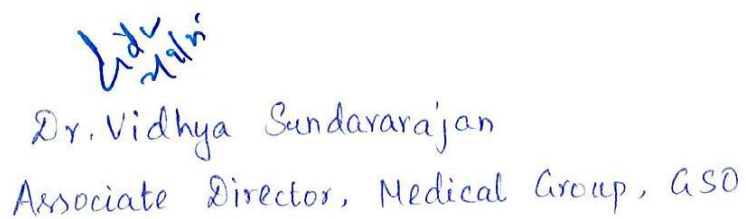 Dr. Vidhya Sundararajan
Associate Director, Medical Group, GSO